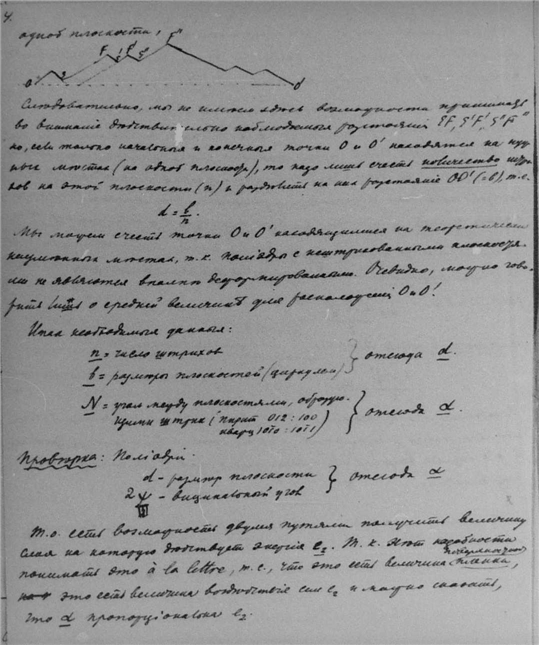 4.
одной плоскости,
F F' F"
O O'
Следовательно, мы не имеем здесь возможности принимать
во внимание действительно наблюдаемыя разстояния
но, если только начальныя и конечныя точки O и O' находятся на нуж
ных местах (на одной плоскости), то надо лишь счесть количество штри
хов на этой плоскости (n) и разделить на них разстояние OO' (=b), т.е.
d = b/n.
Мы можем счесть точки O и O' находящимися на теоретически
местах, т.к. полиэдры с нештрихованными плоскостя
ми не являются вполне деформированными. Очевидно, можно гово
рить лишь о средней величине для расположений O и O'.
Итак необходимыя данныя:
n = число штрихов
b = размеры плоскостей (циркулем) } отсюда d.
N = угол между плоскостями, образую-
щими штрихи (пирит 012 : 100
кварц 1010 : 1011) } отсюда α.
Проверка: Полиэдрия
d - размер плоскости
2ψ - вицинальный угол } отсюда α
Т.о. есть возможность двумя путями получить величину
слоя на которую действует энергия e₂. Т.к. нет надобности
понимать это à la lettre, т.е., что это есть величина
это есть величина воздействия сил e₂ и можно сказать,
что α пропорциональна e₂.